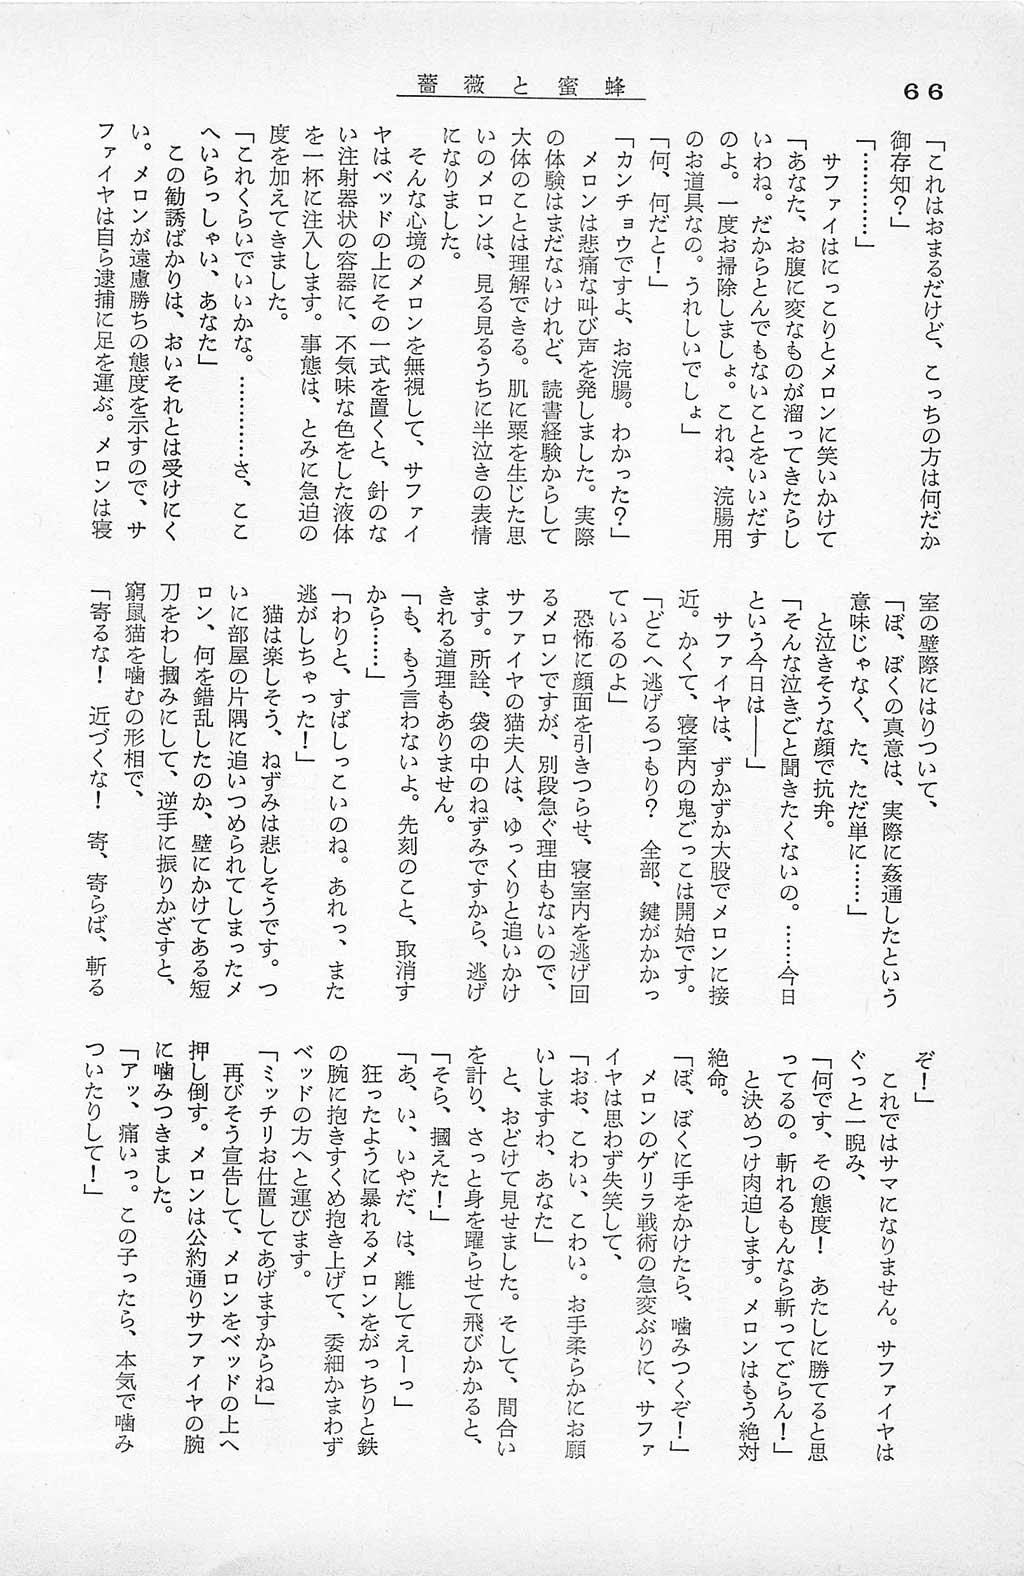 66
薔薇と蜜蜂
「これはおまるだけど、こっちの方は何だか
御存知？」
「…………」
サファイはにっこりとメロンに笑いかけて
「あなた、お腹に変なものが溜ってきたらし
いわね。だからとんでもないことをいいだす
のよ。一度お掃除しましょ。これね、浣腸用
のお道具なの。うれしいでしょ」
「何、何だと！」
「カンチョウですよ、お浣腸。わかった？」
メロンは悲痛な叫び声を発しました。実際
の体験はまだないけれど、読書経験からして
大体のことは理解できる。肌に粟を生じた思
いのメロンは、見る見るうちに半泣きの表情
になりました。
そんな心境のメロンを無視して、サファイ
ヤはベッドの上にその一式を置くと、針のな
い注射器状の容器に、不気味な色をした液体
を一杯に注入します。事態は、とみに急迫の
度を加えてきました。
「これくらいでいいかな。…………さ、ここ
へいらっしゃい、あなた」
この勧誘ばかりは、おいそれとは受けにく
い。メロンが遠慮勝ちの態度を示すので、サ
ファイヤは自ら逮捕に足を運ぶ。メロンは寝
室の壁際にはりついて、
「ぼ、ぼくの真意は、実際に姦通したという
意味じゃなく、た、ただ単に……」
と泣きそうな顔で抗弁。
「そんな泣きごと聞きたくないの。……今日
という今日は――」
サファイヤは、ずかずか大股でメロンに接
近。かくて、寝室内の鬼ごっこは開始です。
「どこへ逃げるつもり？　全部、鍵がかかっ
ているのよ」
恐怖に顔面を引きつらせ、寝室内を逃げ回
るメロンですが、別段急ぐ理由もないので、
サファイヤの猫夫人は、ゆっくりと追いかけ
ます。所詮、袋の中のねずみですから、逃げ
きれる道理もありません。
「も、もう言わないよ。先刻のこと、取消す
から……」
「わりと、すばしっこいのね。あれっ、また
逃がしちゃった！」
猫は楽しそう、ねずみは悲しそうです。つ
いに部屋の片隅に追いつめられてしまったメ
ロン、何を錯乱したのか、壁にかけてある短
刀をわし摑みにして、逆手に振りかざすと、
窮鼠猫を噛むの形相で、
「寄るな！　近づくな！　寄、寄らば、斬る
ぞ！」
これではサマになりません。サファイヤは
ぐっと一睨み、
「何です、その態度！　あたしに勝てると思
ってるの。斬れるもんなら斬ってごらん！」
と決めつけ肉迫します。メロンはもう絶対
絶命。
「ぼ、ぼくに手をかけたら、噛みつくぞ！」
メロンのゲリラ戦術の急変ぶりに、サファ
イヤは思わず失笑して、
「おお、こわい、こわい。お手柔らかにお願
いしますわ、あなた」
と、おどけて見せました。そして、間合い
を計り、さっと身を躍らせて飛びかかると、
「そら、摑えた！」
「あ、い、いやだ、は、離してえーっ」
狂ったように暴れるメロンをがっちりと鉄
の腕に抱きすくめ抱き上げて、委細かまわず
ベッドの方へと運びます。
「ミッチリお仕置してあげますからね」
再びそう宣告して、メロンをベッドの上へ
押し倒す。メロンは公約通りサファイヤの腕
に噛みつきました。
「アッ、痛いっ。この子ったら、本気で噛み
ついたりして！」